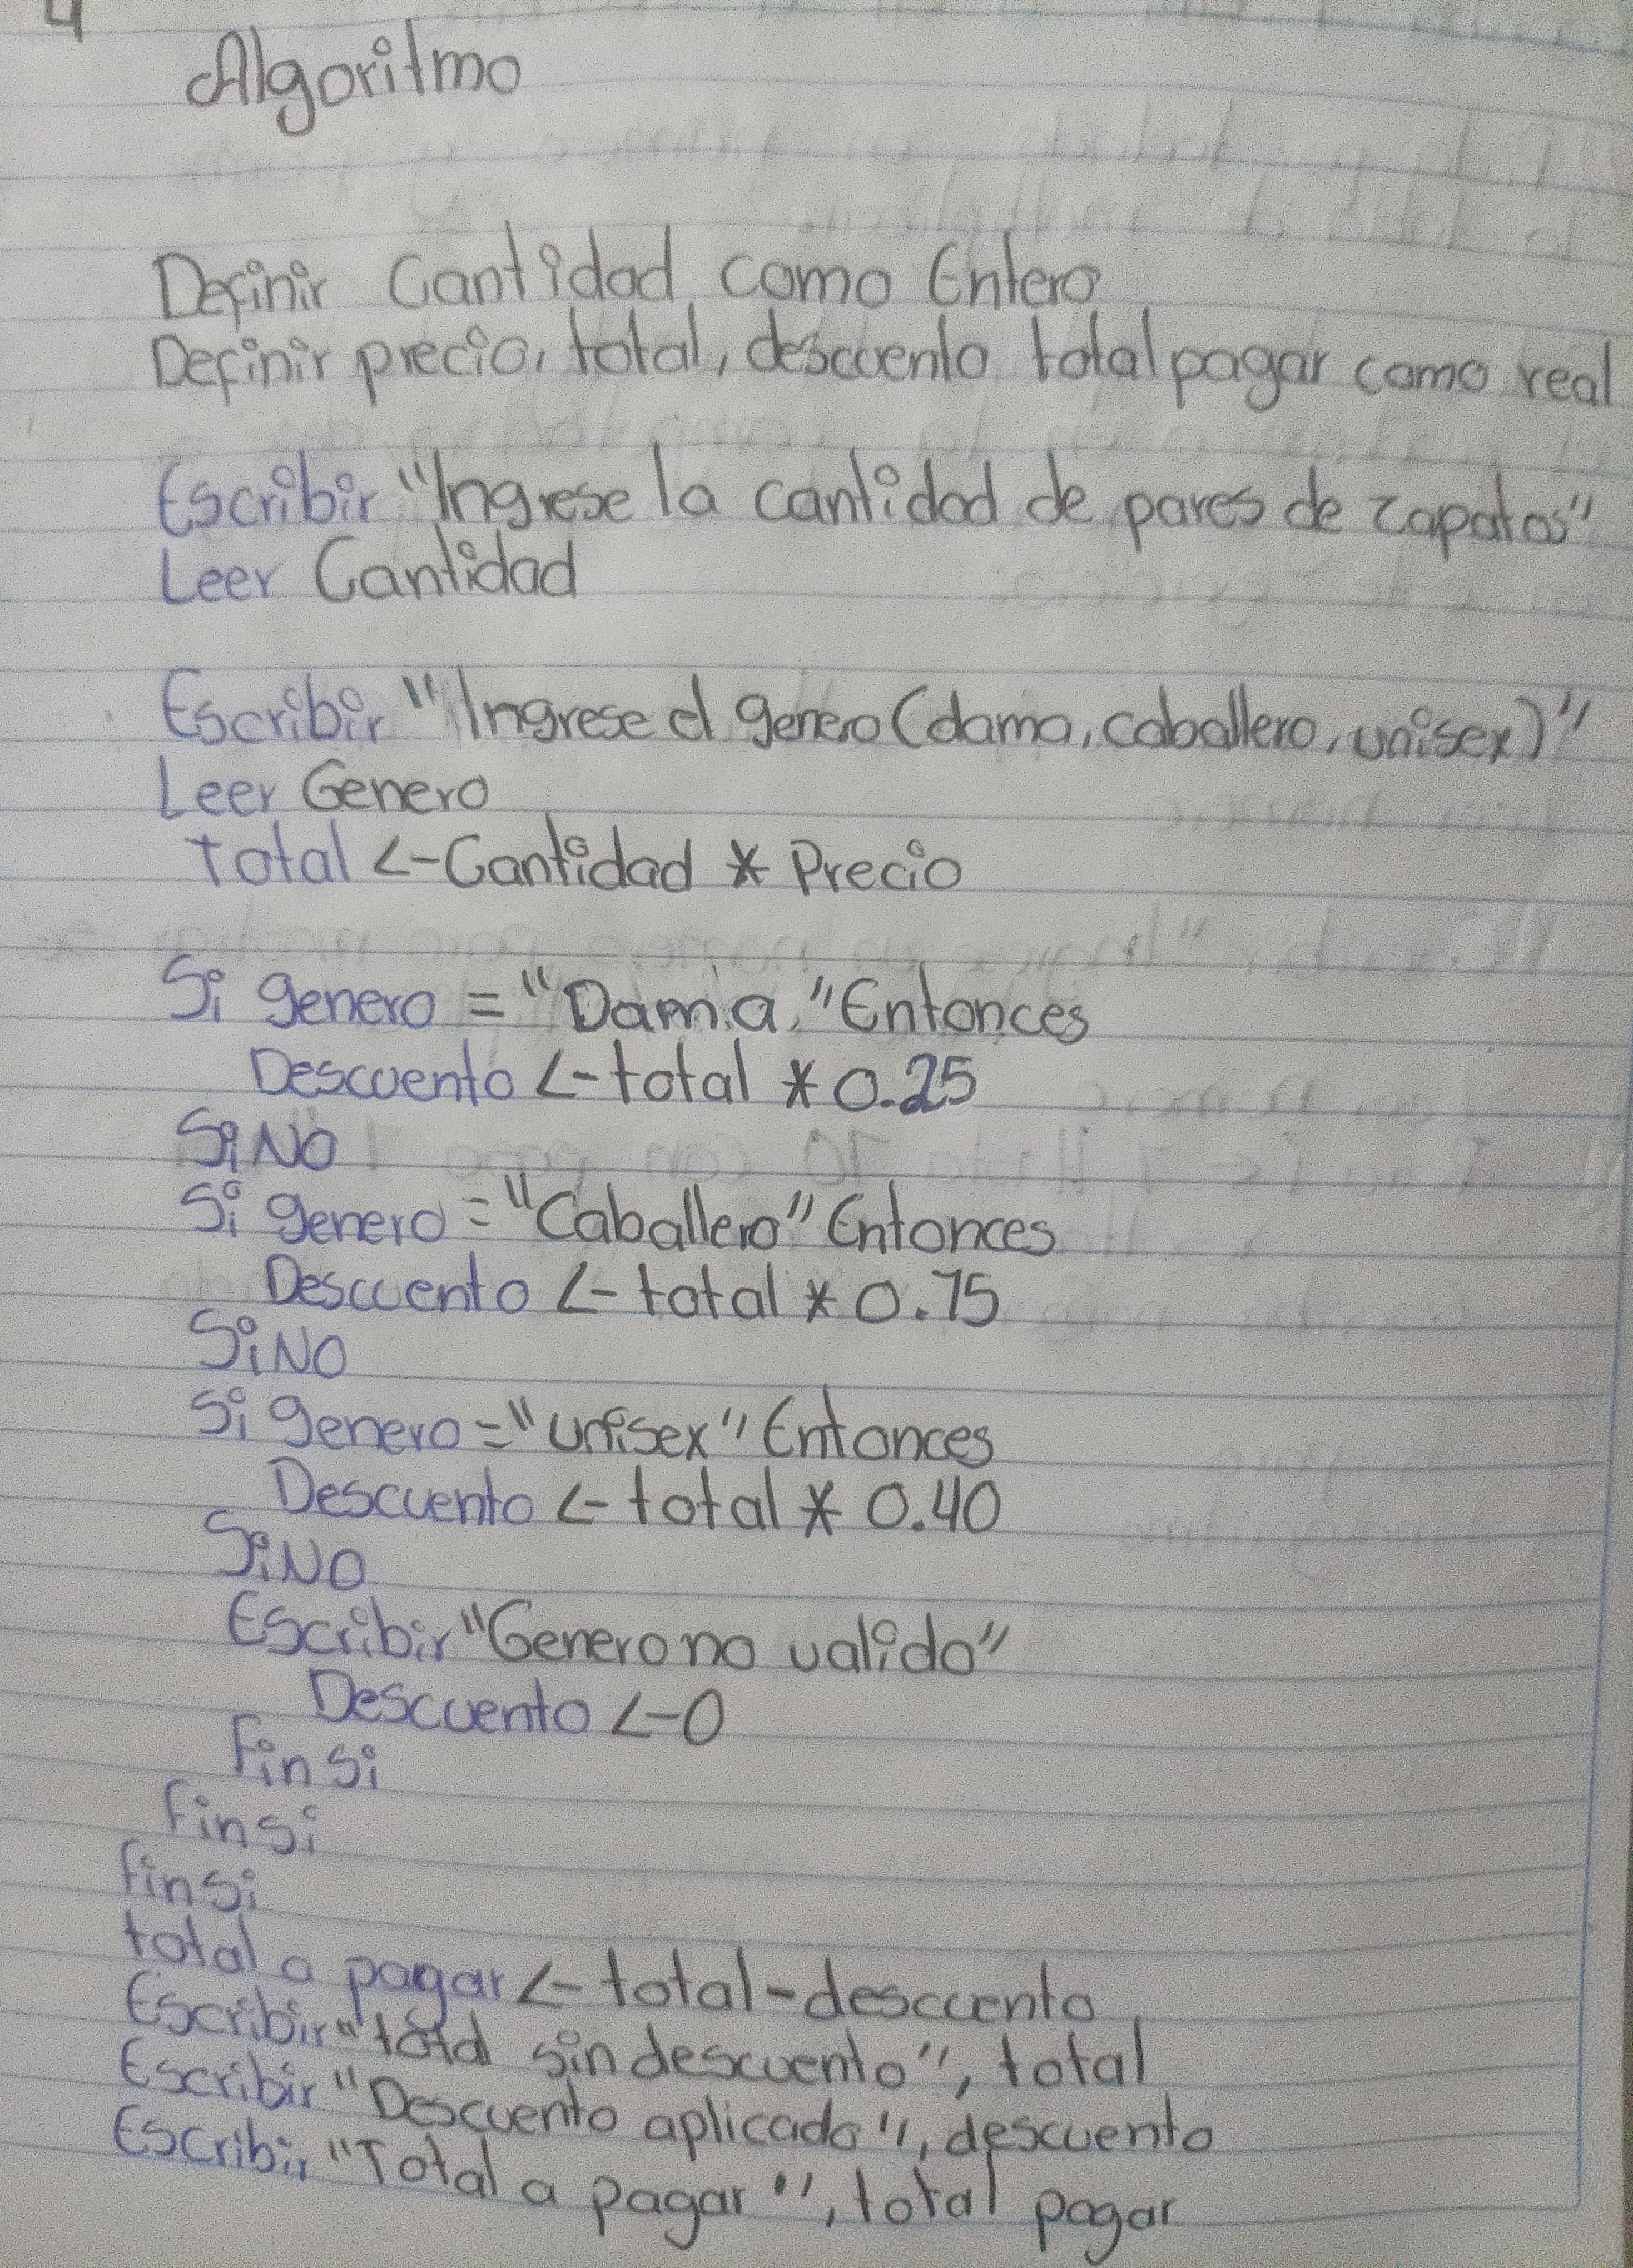 4
Algoritmo
Definir Cantidad como Entero
Definir precio, total, descuento total pagar como real
Escribir "Ingrese la cantidad de pares de zapatos"
Leer Cantidad
Escribir "Ingrese el genero (dama, caballero, unisex)"
Leer Genero
Total <-Cantidad * Precio
Si genero = "Dama" Entonces
Descuento <-total * 0.25
SiNO
Si genero = "Caballero" Entonces
Descuento <-total * 0.75
SiNO
Si genero = "unisex" Entonces
Descuento <-total * 0.40
SiNO
Escribir "Genero no valido"
Descuento <-0
Finsi
Finsi
Finsi
total a pagar <-total-descuento
Escribir "total sin descuento", total
Escribir "Descuento aplicado", descuento
Escribir "Total a pagar", total pagar